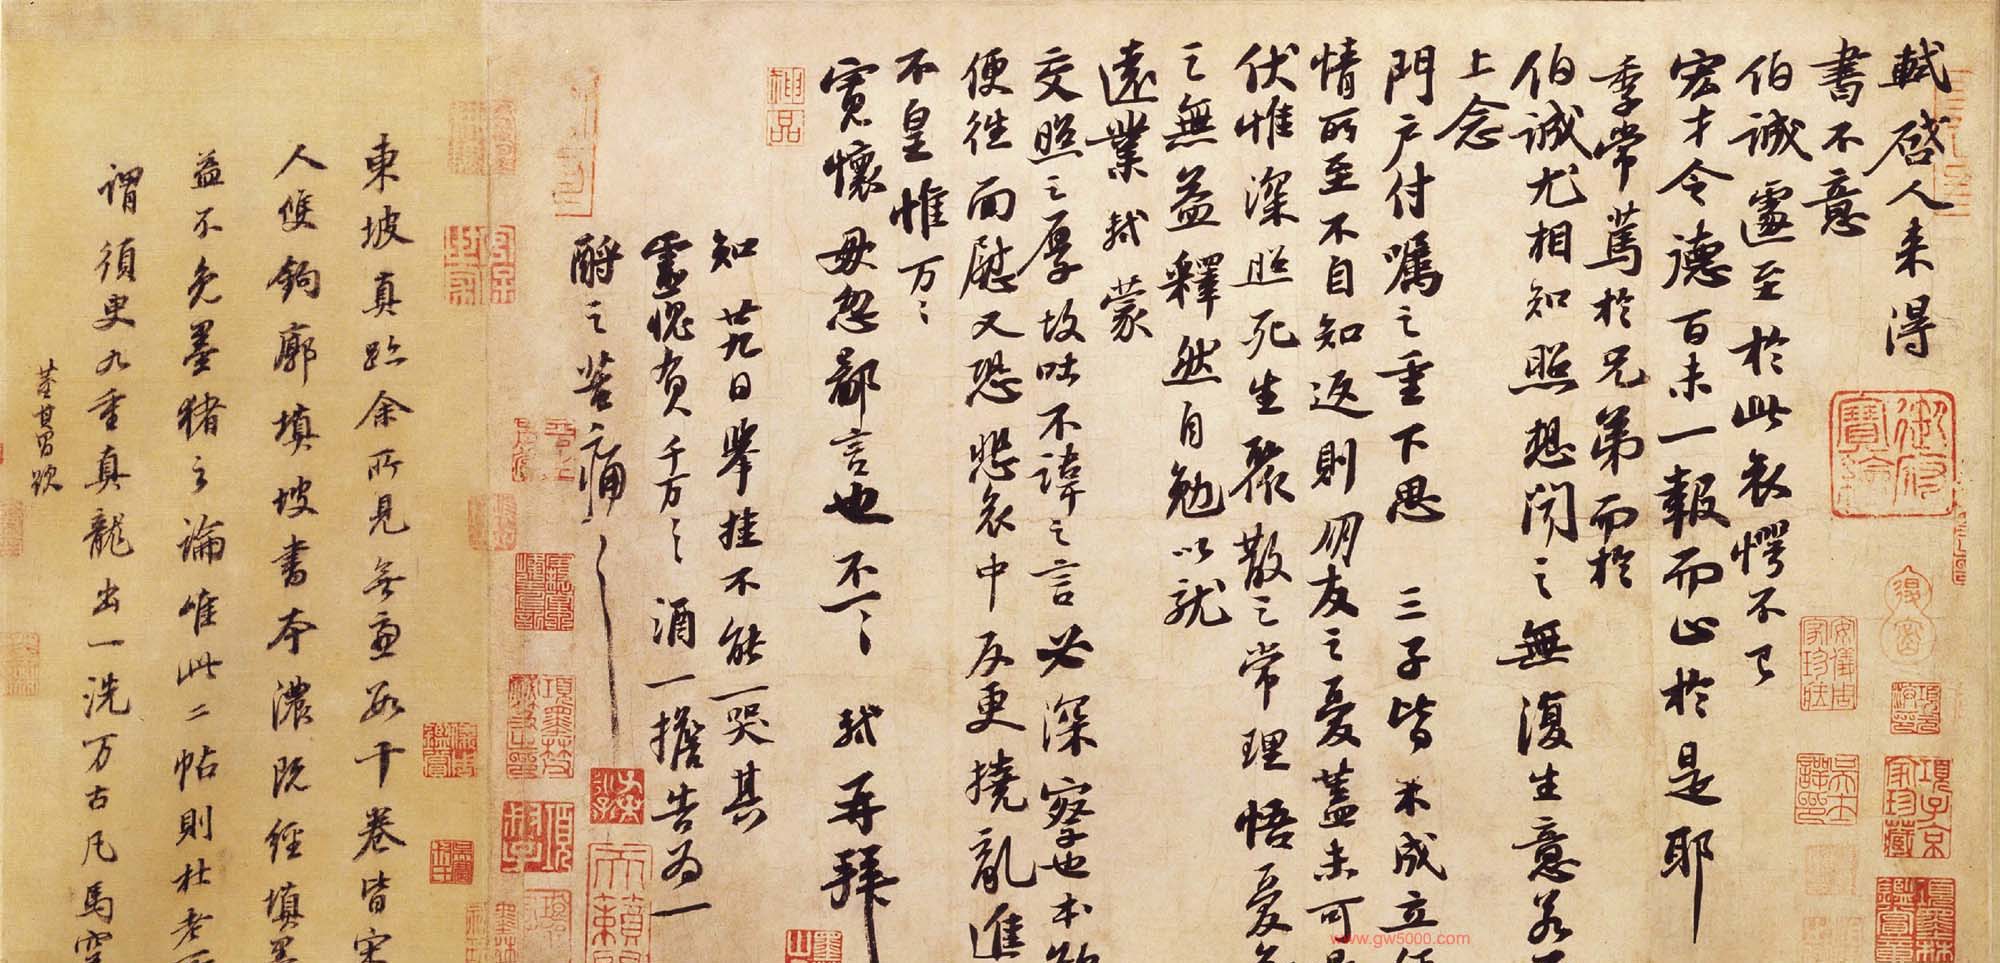 軾啓人来得
書不意
伯誠遽至於此哀愕不已
宏才令德百未一報而止於是耶
季常篤於兄弟而於
伯誠尤相知照想聞之無復生意若不
上念
門户付嘱之重下思三子皆未成立任
情所至不自知返則朋友之憂蓋未可量
伏惟深照死生聚散之常理悟憂哀
之無益釋然自勉以就
遠業軾蒙
交照之厚故吐不諱之言必深察也本欲
便往面慰又恐悲哀中反更撓亂進
不皇惟万々
寬懷毋忽鄙言也不一々軾再拜
知廿九日舉挂不能一哭其
靈愧負千万々酒一擔告為一
酹之苦痛々々
東坡真跡余所見無慮數十卷皆宋
人雙鉤廓填坡書本濃既經填墨
益不免墨猪之論唯此二帖則杜老所
謂須臾九重真龍出一洗万古凡馬空
董其昌跋
神品
御府寶繪
項子京家珍藏
安儀周家珍藏
www.gw5000.com